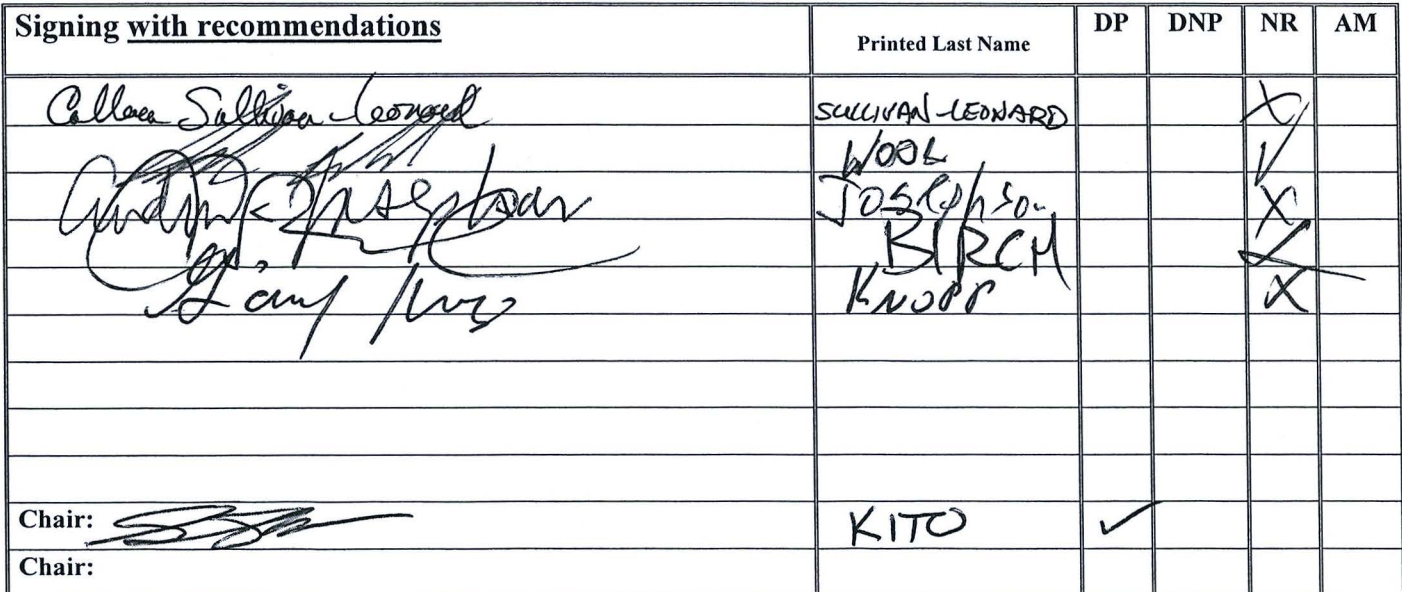 Signing with recommendations Printed Last Name DP DNP NR AM
Colleen Sullivan-Leonard SULLIVAN-LEONARD X
WOOL ✓
Josephson X
BIRCH ✓
KNOPP X
Chair: KITO ✓
Chair: